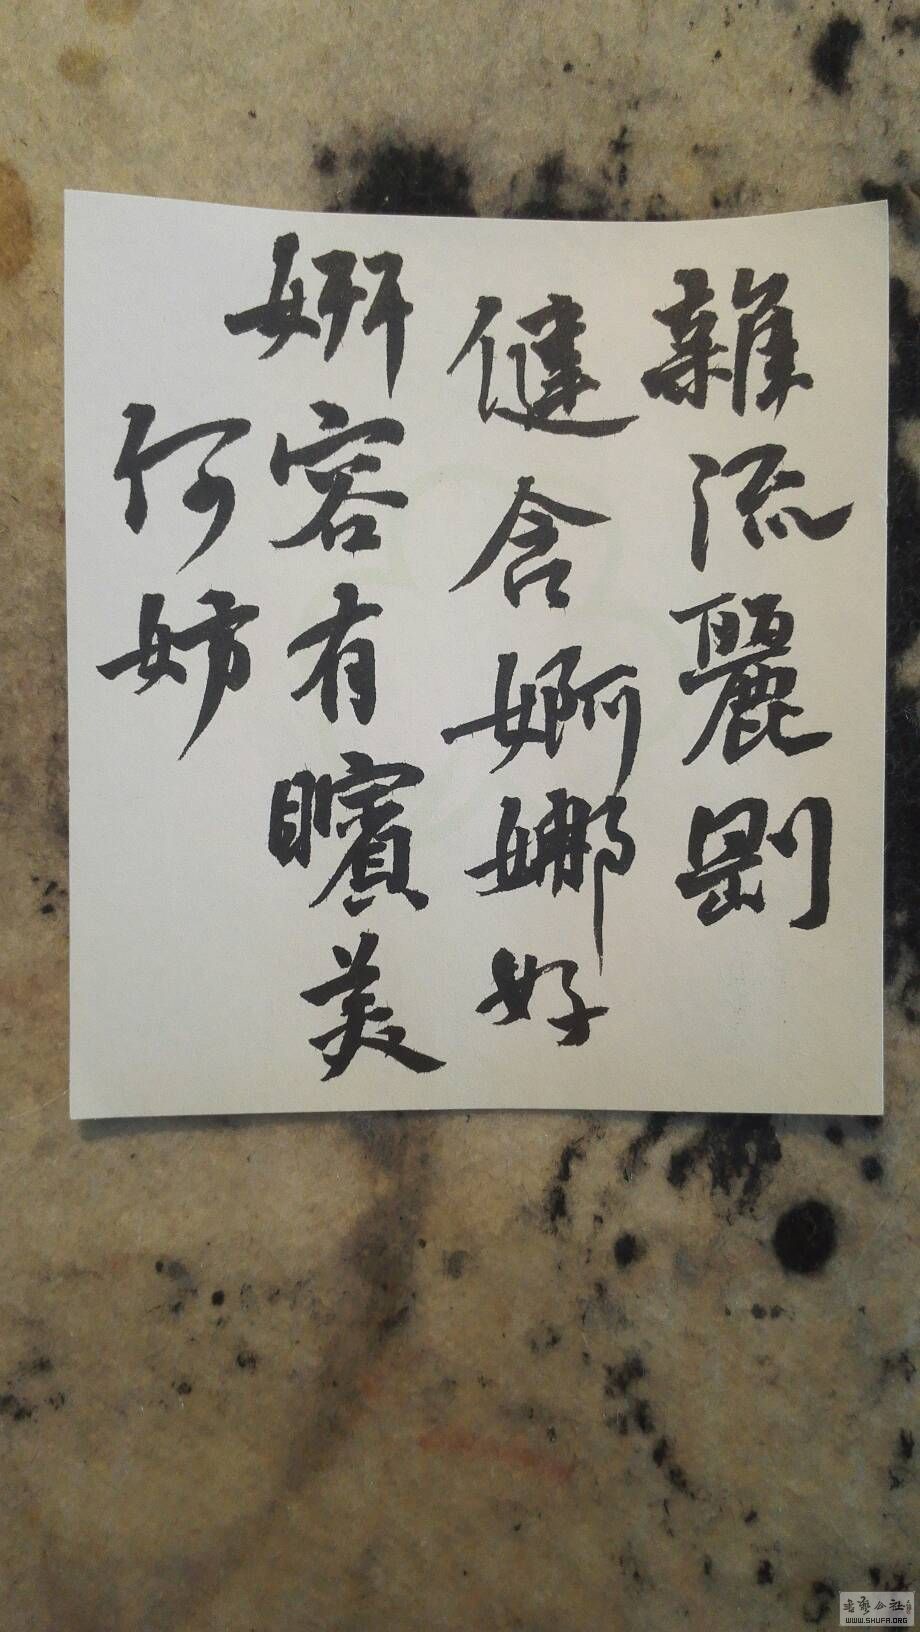 雜流麗剛
健含婀娜好
妍容有矉美
何妨
书艺公社
WWW.SHUFA.ORG